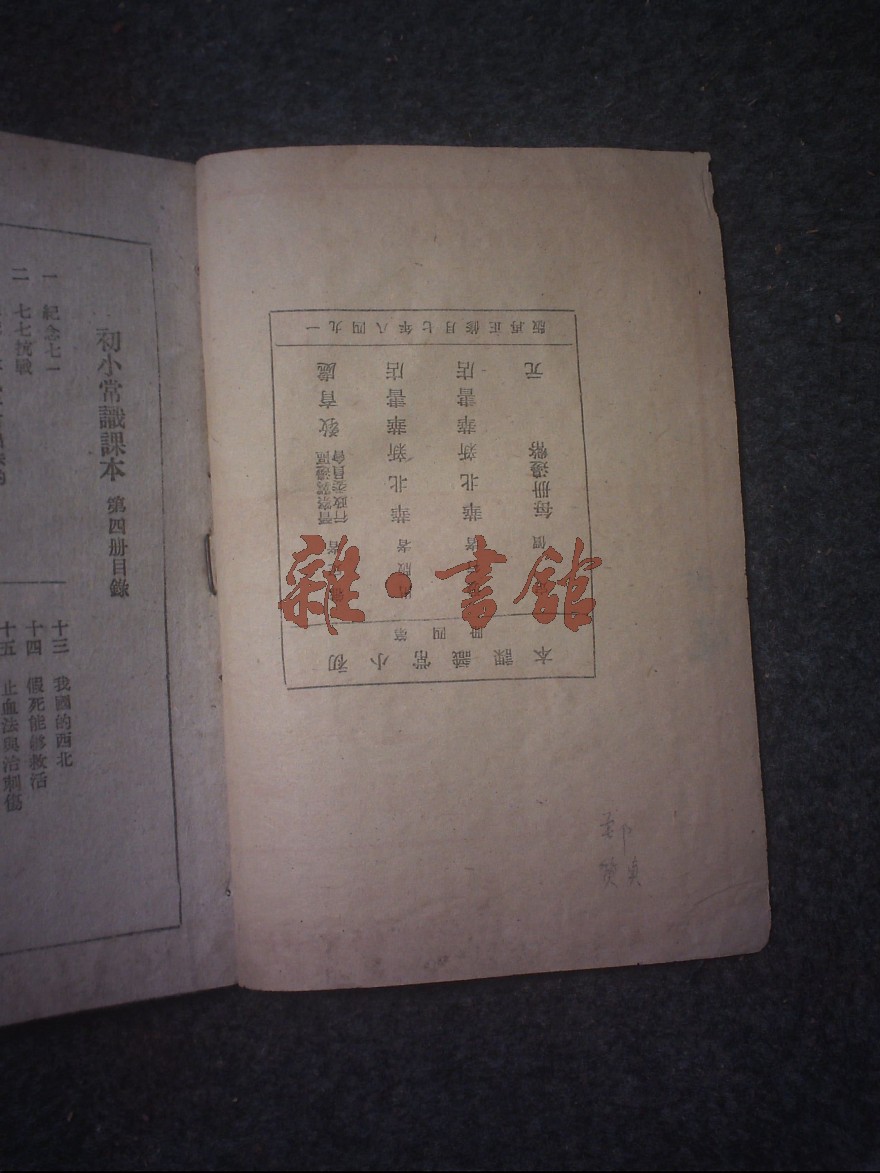 初小常識課本 第四册目錄
一 紀念七一
二 七七抗戰
十三 我國的西北
十四 假死能够救活
十五 止血法與治刺傷
初小常識課本
第四册
者 晉察冀邊區行政委員會 教育處
版者 華北新華書店
者 華北新華書店
價 每册邊幣 元
一九四八年七月修正再版
雜·書館